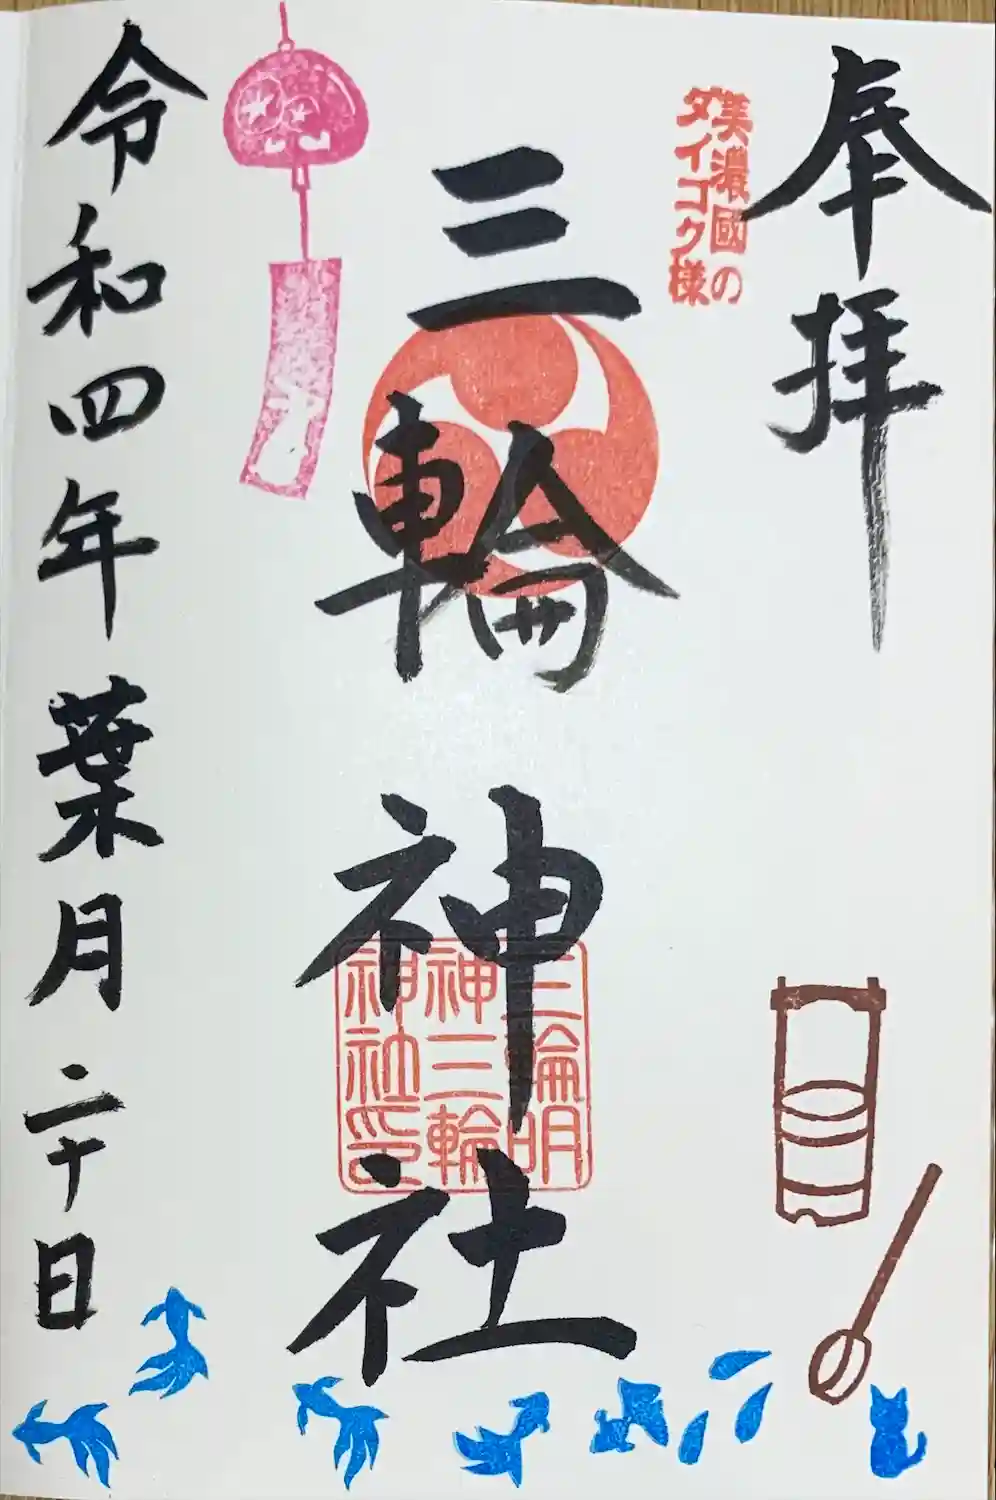 奉拝
美濃國の
ダイコク様
三輪神社
三輪明
神三輪
神社印
令和四年葉月二十日